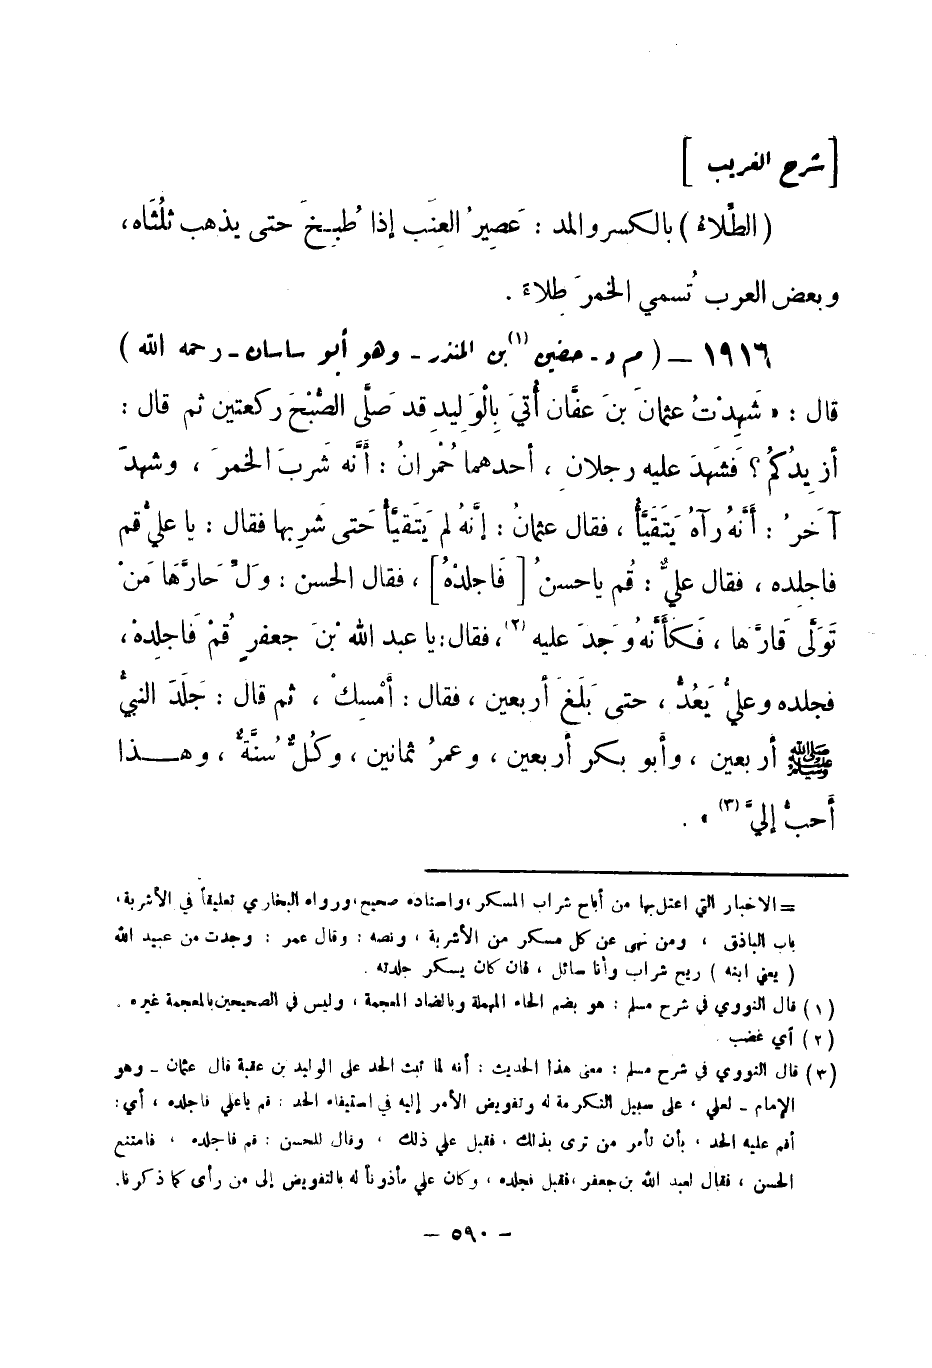 [ شرح الغريب ]
( الطِّلاءُ ) بالكسر والمد : عَصيرُ العِنَب إذا طُبِخَ حتى يذهب ثلُثَاه ،
وبعض العرب تُسمي الخمرَ طِلاءً .
١٩١٦ – ( م د - حضين (١) بن المنذر - وهو أبو ساسان - رحمه الله )
قال : « شَهِدْتُ عثمانَ بنَ عفَّان أُتيَ بِالْوَليدِ قد صَلَّى الصُّبْحَ ركعتين ثم قال :
أزيدُكُمْ ؟ فَشَهِدَ عليه رجلان ، أحدهما حُمْرانُ : أنَّه شربَ الخمرَ ، وشهدَ
آخرُ : أنَّهُ رآهُ يَتَقَيَّأُ ، فقال عثمانُ : إنَّهُ لم يَتَقيَّأْ حَتى شَربها فقال : يا عليُّ قم
فاجلده ، فقال عليٌّ : قُم يا حسنُ [ فَاجلدْهُ ] ، فقال الحسن : وَلِّ حَارَّهَا مَنْ
تَوَلَّى قَارَّها ، فَكَأَنَّهُ وَجدَ عليه (٢) ، فقال : يا عبد الله بْنَ جعفرٍ قُمْ فَاجلِدهْ ،
فجلده وعليٌّ يَعُدُّ ، حتى بَلَغَ أربعين ، فقال : أَمْسِكْ ، ثم قال : جَلَدَ النبيُّ
ﷺ أربعين ، وأبو بكر أربعين ، وعمرُ ثمانين ، وكُلٌّ سُنَّةٌ ، وهـــذا
أَحبُّ إليَّ (٣) » .
= الاخبار التي اعتل بها من أباح شراب المسكر ، واسناده صحيح ، ورواه البخاري تعليقاً في الأشربة ،
باب الباذق ، ومن نهى عن كل مسكر من الأشربة ، ونصه : وقال عمر : وجدت من عبيد الله
( يعني ابنه ) ريح شراب وأنا سائل ، فان كان يسكر جلدته .
(١) قال النووي في شرح مسلم : هو بضم الحاء المهملة وبالضاد المعجمة ، وليس في الصحيحين بالمعجمة غيره .
(٢) أي غضب .
(٣) قال النووي في شرح مسلم : معنى هذا الحديث : أنه لما ثبت الحد على الوليد بن عقبة قال عثمان - وهو
الإمام - لعلي ، على سبيل التكرمة له وتفويض الأمر إليه في استيفاء الحد : قم يا علي فاجلده ، أي :
أقم عليه الحد ، بأن تأمر من ترى بذلك ، فقبل علي ذلك ، وقال للحسن : قم فاجلده ، فامتنع
الحسن ، فقال لعبد الله بن جعفر ، فقبل فجلده ، وكان علي مأذوناً له بالتفويض إلى من رأى كما ذكرنا .
– ٥٩٠ –